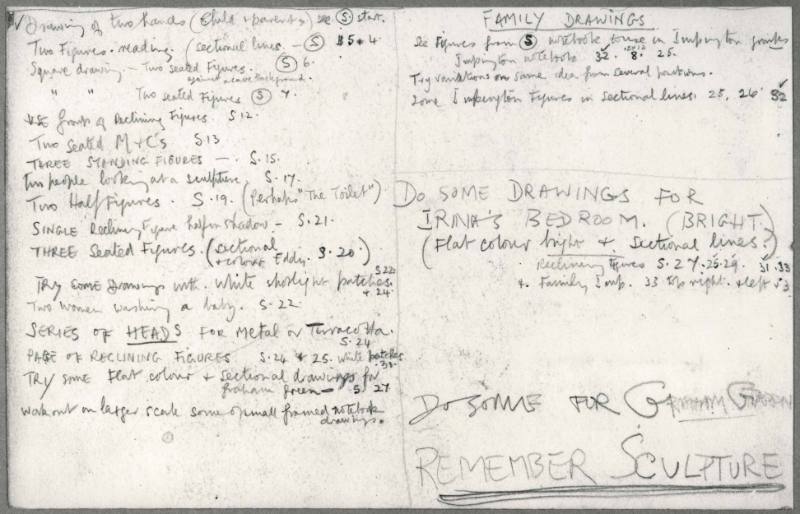 Drawing of two hands (Child & parents) see Ⓢ start.
Two Figures reading. (sectional lines. – Ⓢ 5 + 4.
Square drawing – Two seated Figures. Ⓢ 6.
against a background.
" " Two seated Figures Ⓢ 7.
USE Group of Reclining Figures. S.12.
Two seated M & C's S.13
THREE STANDING FIGURES – . S.15.
Two people looking at a sculpture. S.17.
Two Half Figures. S.19. (Perhaps "The Toilet")
SINGLE Reclining Figure half in shadow – S.21.
THREE Seated Figures. (sectional & colour Eddy. S.20.)
TRY SOME Drawings with. White shorlight patches. S22 & 24.
Two Women washing a baby. S.22.
SERIES OF HEADS FOR Metal or Terracotta. S.24
PAGE OF RECLINING FIGURES S.24 & 25. White patches 33.
TRY SOME Flat colour & Sectional drawings for
Graham Green – S. 27.
Work out on larger scale some of small framed notebook
drawings.
FAMILY DRAWINGS
See Figures from Ⓢ notebook to use in Impington groups
Impington notebook 32. 8. 25.
Try variations on same idea from several positions.
Some Impington Figures in sectional lines. 25. 26. 32
DO SOME DRAWINGS FOR
IRINA'S BEDROOM. (BRIGHT)
(Flat colour bright & Sectional lines.)
Reclining Figures S.27.25.29. 31.33
&. Family Imp. 33 top right. & left 33
DO SOME FOR GRAHAM GREEN
REMEMBER SCULPTURE